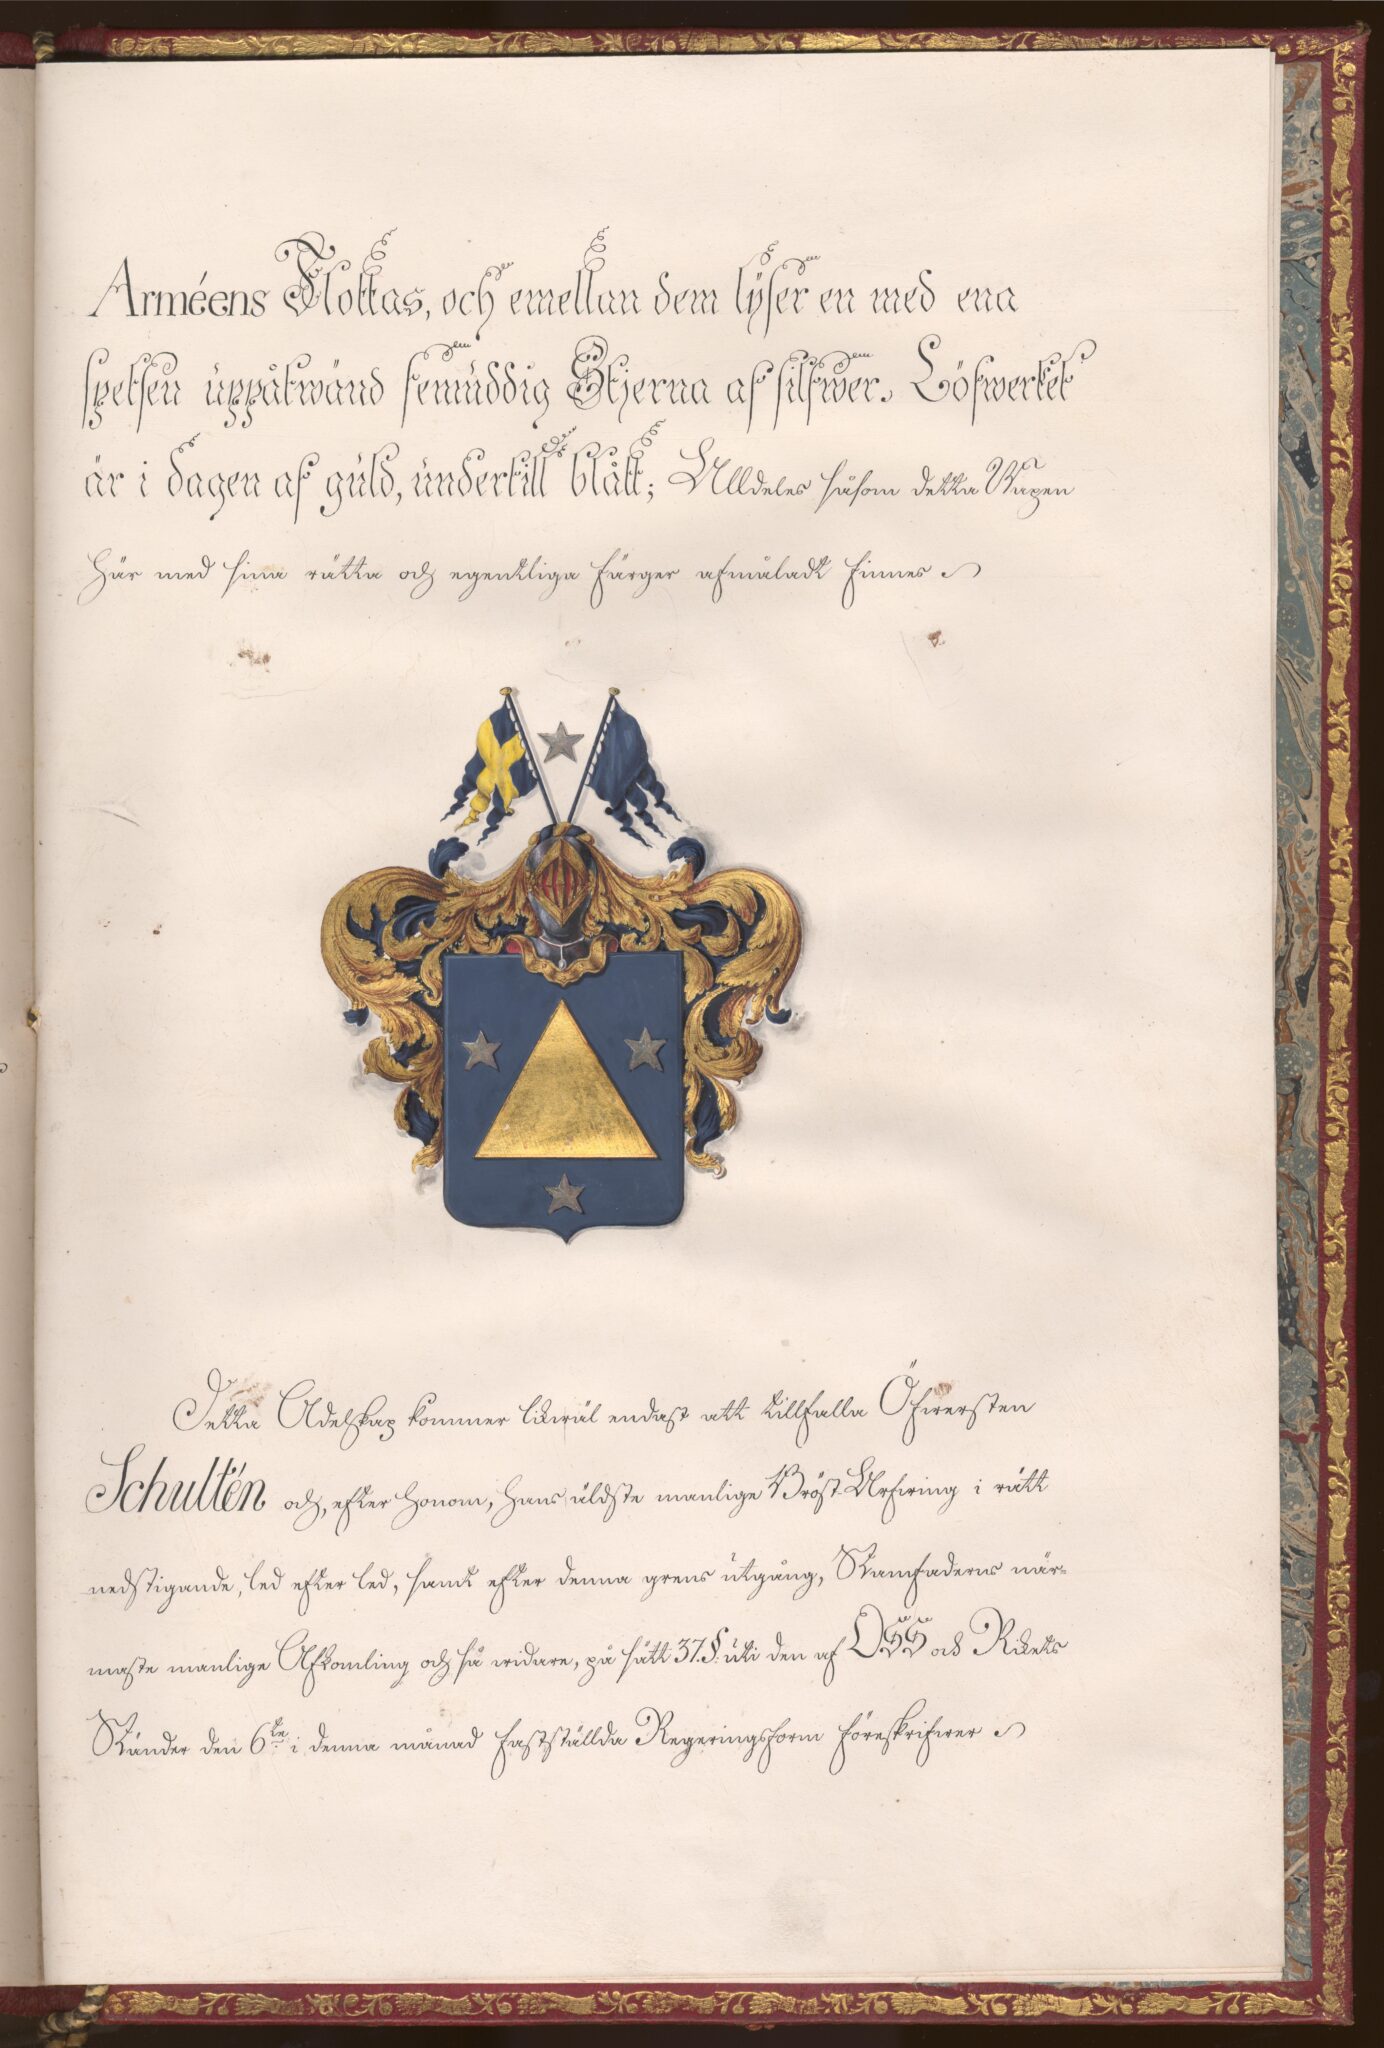 Arméens Flottas, och emellan dem lyser en med ena
spetsen uppåtwänd femuddig Stjerna af silfwer. Löfwerket
är i dagen af guld, undertill blått; Alldeles såsom detta Wapen
här med sina rätta och egenteliga färger afmåladt finnes
Detta Adelskap kommer likwäl endast att tillfalla Öfwersten
Schultén och, efter Honom, Hans äldste manlige Bröst-Arfwing i rätt
nedstigande, led efter led, samt efter denna grens utgång, Stamfaderns när-
maste manlige Afkomling och så widare, på sätt 37. §. uti den af OSS och Rikets
Ständer den 6te i denna månad fastställda Regeringsform föreskrifwer